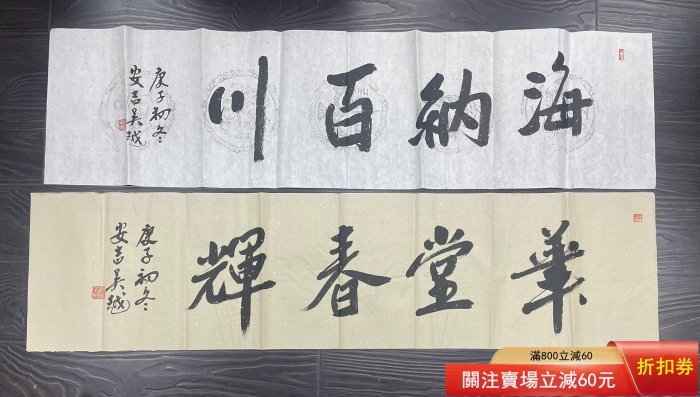 海納百川
庚子初冬
安吉吳越
華堂春輝
庚子初冬
安吉吳越
滿800立減60
關注賣場立減60元
折扣券